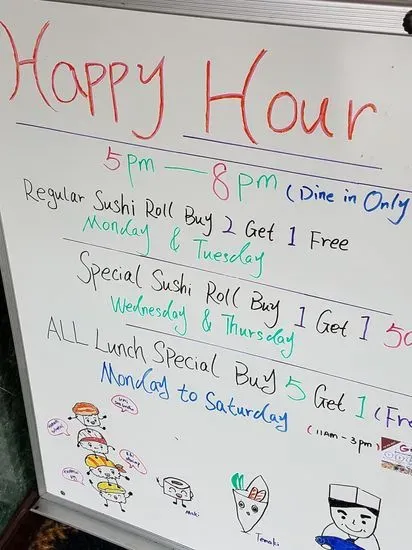 Happy Hour
5pm — 8pm (Dine in Only
Regular Sushi Roll Buy 2 Get 1 Free
Monday & Tuesday
Special Sushi Roll Buy 1 Get 1 50
Wednesday & Thursday
ALL Lunch Special Buy 5 Get 1 (Fre
Monday to Saturday
(11AM - 3pm)
Maki
Temaki